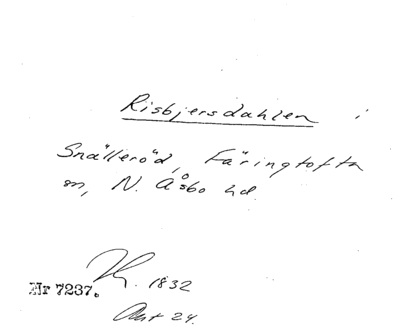 Risbjersdahlen i
Snälleröd, Färingtofta
sn, N. Åsbo hd.
Nr 7237. 1832
Akt 24.